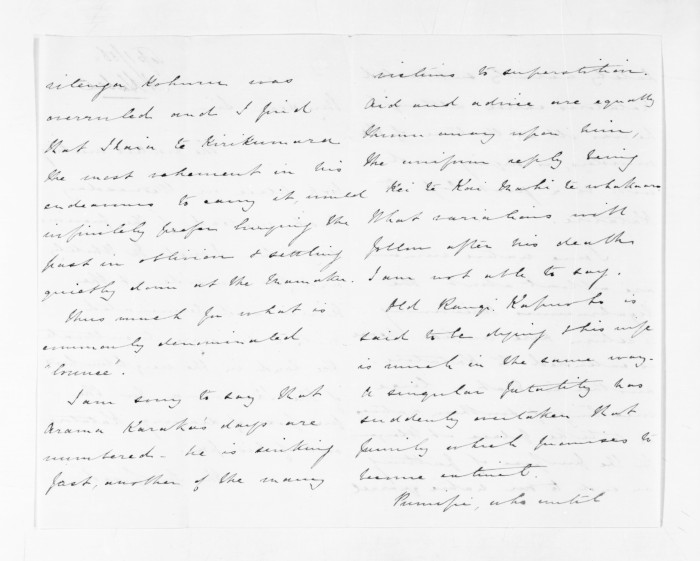 sitenga Kohuru was
overruled and I find
that Ihaia te Kirikumara
the most vehement in his
endeavours to carry it, would
infinitely prefer burying the
past in oblivion & settling
quietly down at the Mamaku.
Thus much for what is
commonly denominated
"bounce".
I am sorry to say that
Arama Karaka's days are
numbered - he is sinking
fast, another of the many
victims to superstition.
Aid and advice are equally
thrown away upon him,
the uniform reply being
Kei te Kai Mahi te whakaaro
What variations will
follow after his death
I am not able to say.
Old Rangi Kapuoho is
said to be dying & his wife
is much in the same way.
A singular fatality has
suddenly overtaken that
family which promises to
become extinct.
who until